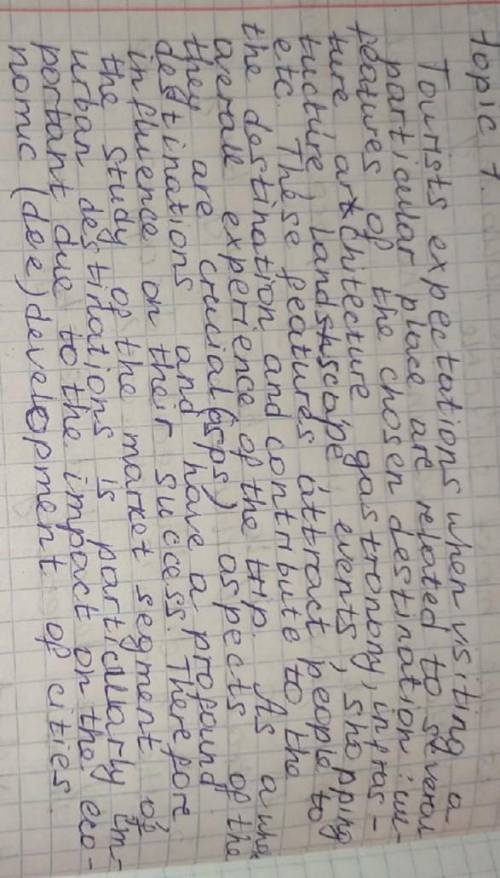 Topic 7.
Tourists expectations when visiting a
particular place are related to several
features of the chosen destination: cul-
ture architecture gastronomy, infras-
tucture, landshscape, events, shopping
etc. These features attract people to
the destination and contribute to the
overall experience of the trip. As a whole
they are crucial (asps) aspects of the
destinations and have a profound
influence on their success. Therefore
the study of the market segment of
urban destinations is particularly im-
portant due to the impact on the eco-
nomic (dee) development of cities.